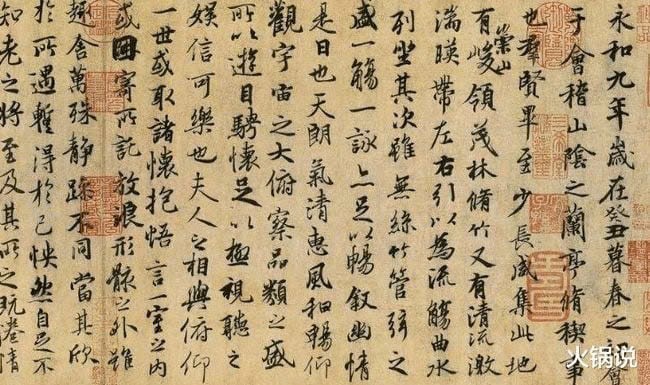 永和九年歲在癸丑暮春之初會
于會稽山陰之蘭亭脩稧事
也羣賢畢至少長咸集此地
有崇山峻領茂林脩竹又有清流激
湍暎帶左右引以為流觴曲水
列坐其次雖無絲竹管弦之
盛一觴一詠亦足以暢叙幽情
是日也天朗氣清惠風和暢仰
觀宇宙之大俯察品類之盛
所以遊目騁懷足以極視聽之
娛信可樂也夫人之相與俯仰
一世或取諸懷抱悟言一室之內
或因寄所託放浪形骸之外雖
趣舍萬殊靜躁不同當其欣
於所遇暫得於己怏然自足不
知老之將至及其所之既惓情
火锅说